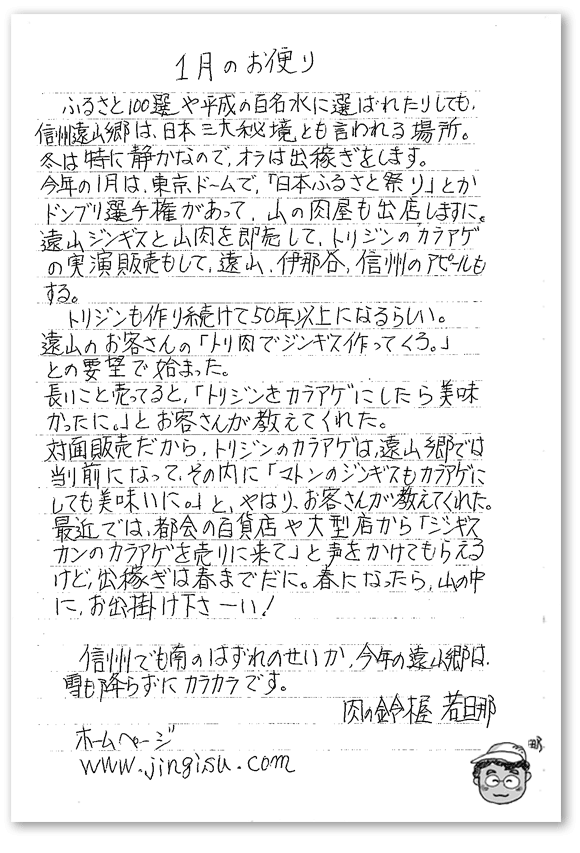 1月のお便り
ふるさと100選や平成の百名水に選ばれたりしても、
信州遠山郷は、日本三大秘境とも言われる場所。
冬は特に静かなので、オラは出稼ぎをします。
今年の1月は、東京ドームで、「日本ふるさと祭り」とか
ドンブリ選手権があって、山の肉屋も出店しますに。
遠山ジンギスと山肉を即売して、トリジンのカラアゲ
の実演販売もして、遠山、伊那谷、信州のアピールも
する。
トリジンも作り続けて50年以上になるらしい。
遠山のお客さんの「トリ肉でジンギス作ってくろ。」
との要望で始まった。
長いこと売ってると、「トリジンをカラアゲにしたら美味
かったに。」とお客さんが教えてくれた。
対面販売だから、トリジンのカラアゲは、遠山郷では
当り前になって、その内に「マトンのジンギスもカラアゲに
しても美味いに。」と、やはり、お客さんが教えてくれた。
最近では、都会の百貨店や大型店から「ジンギス
カンのカラアゲを売りに来て」と声をかけてもらえる
けど、出稼ぎは春までだに。春になったら、山の中
に、お出掛け下さーい!
信州でも南のはずれのせいか、今年の遠山郷は、
雪も降らずにカラカラです。
肉の鈴木屋 若旦那
ホームページ
www.jingisu.com